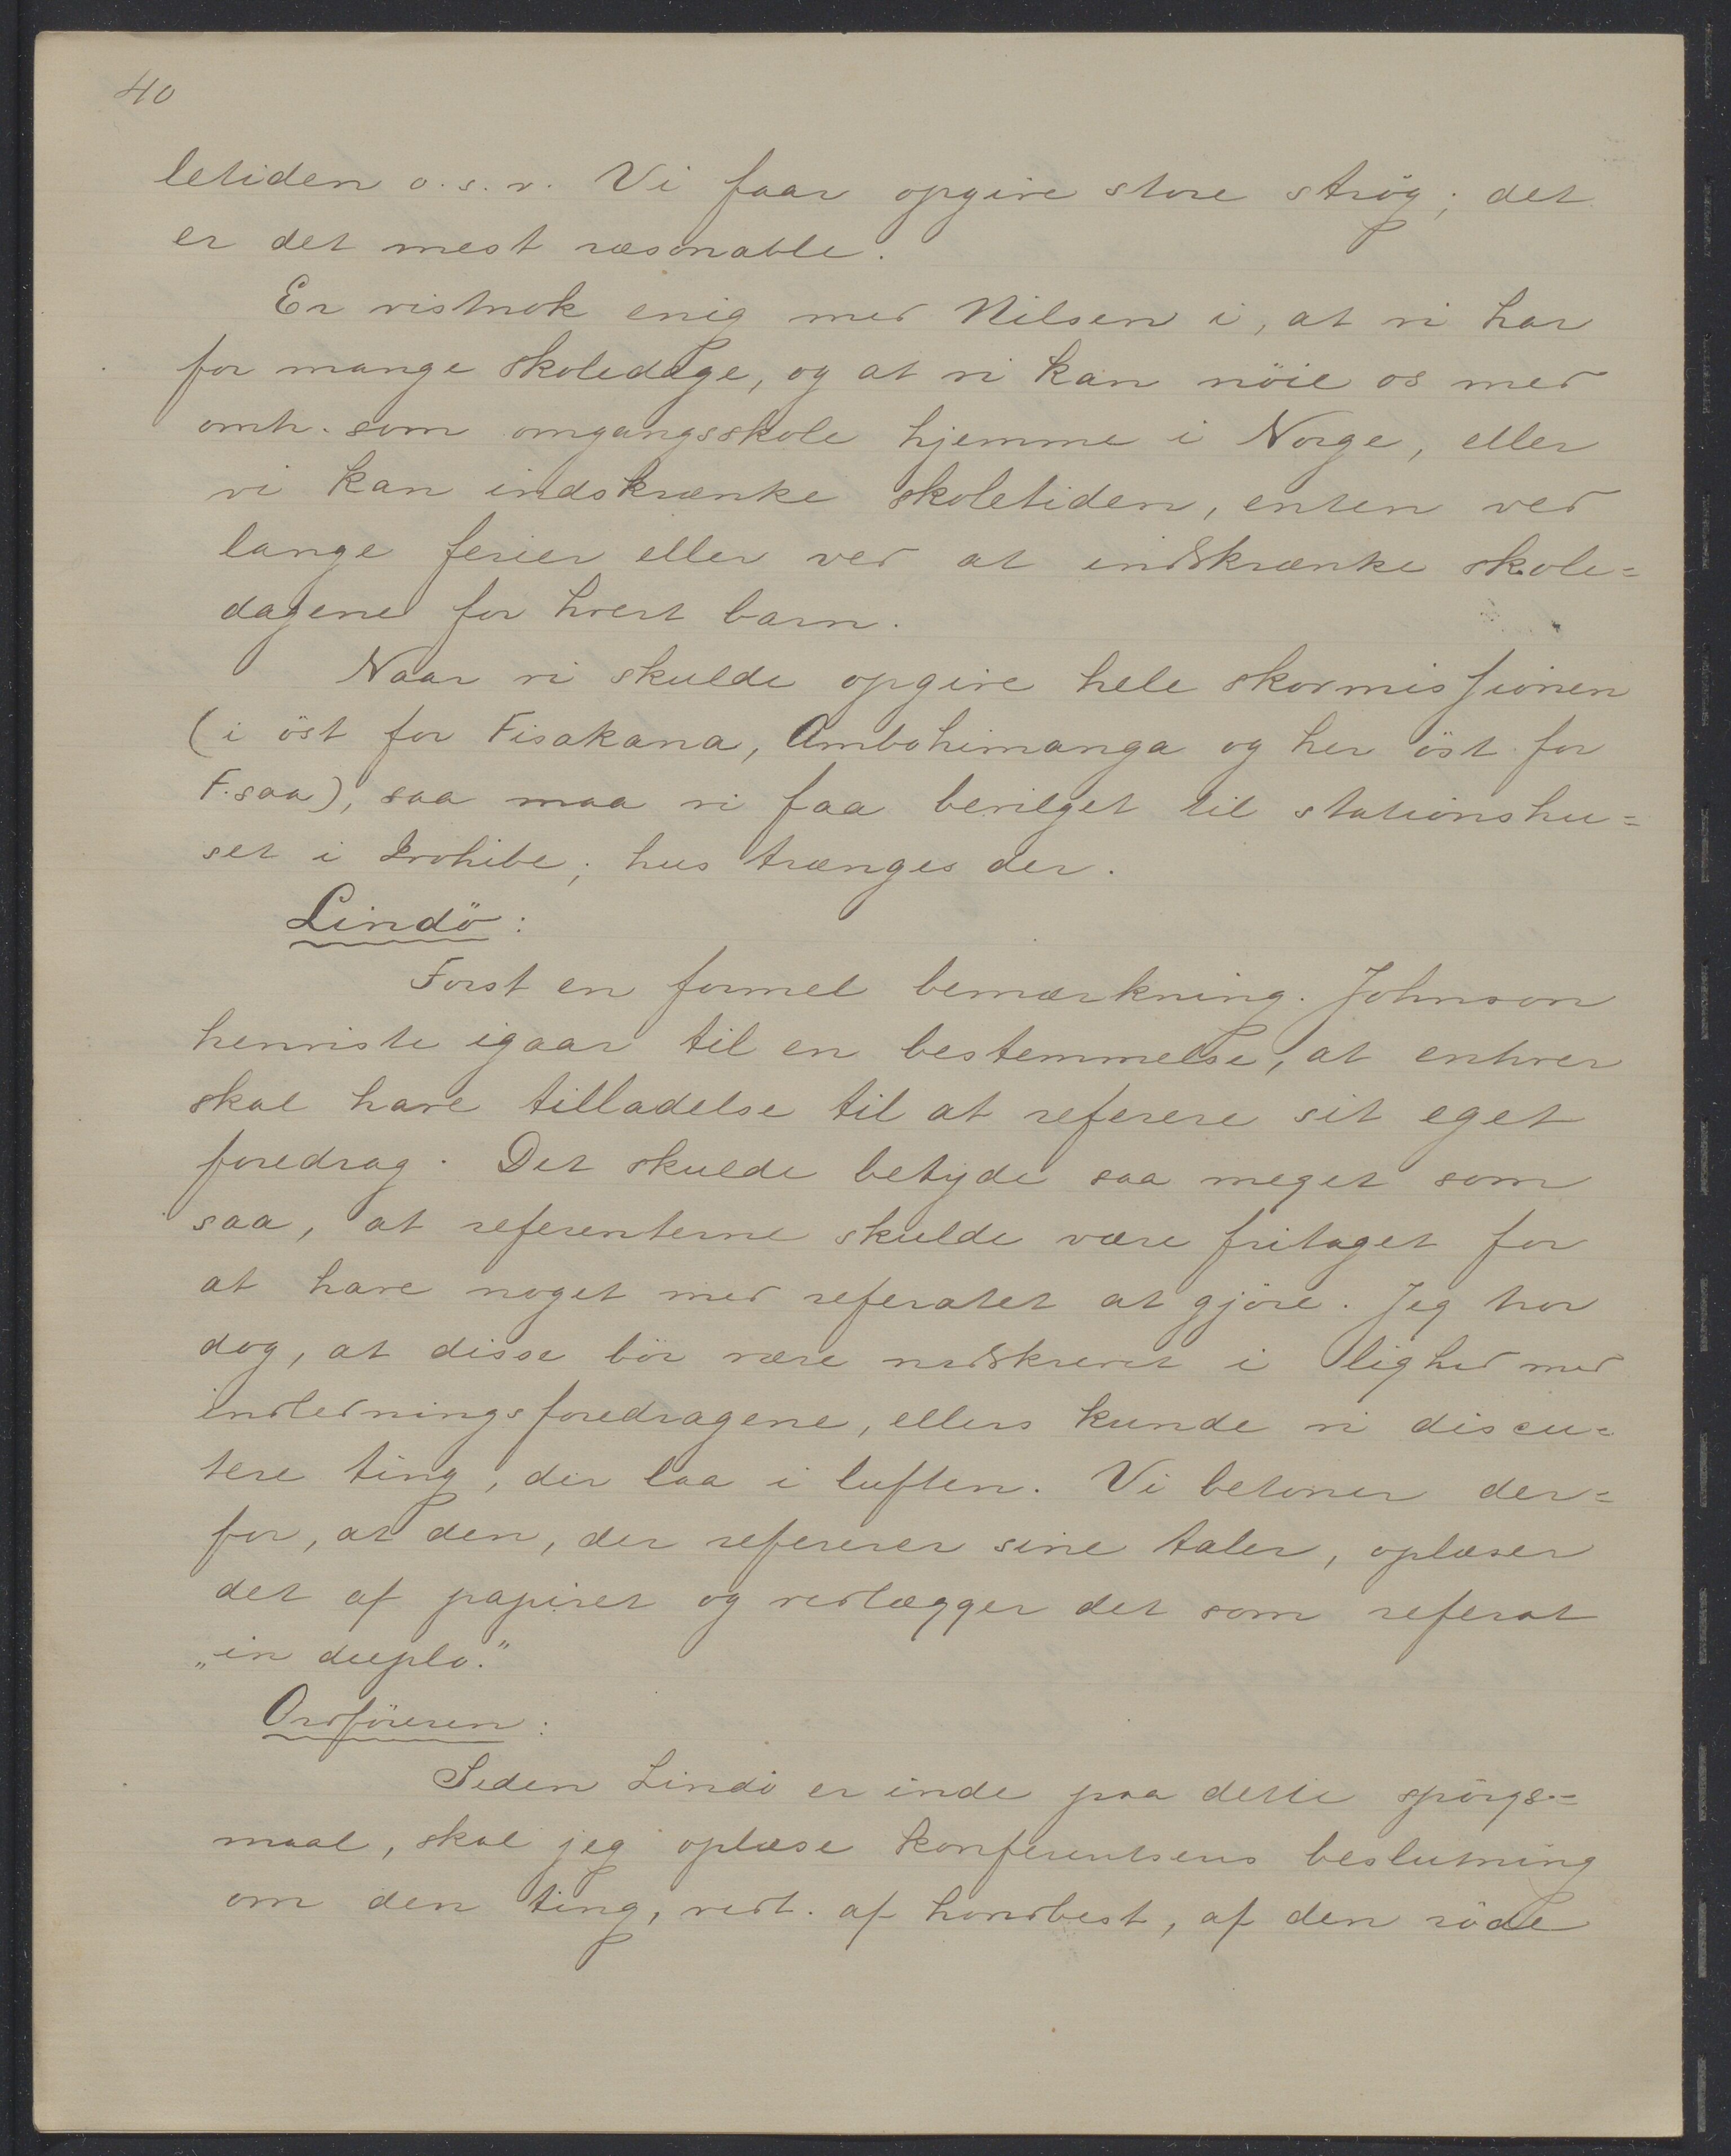 40
letiden o. s. v. Vi faar opgive store strög; det
er det mest ræsonable.
Er vistnok enig med Nilsen i, at vi har
for mange skoledage, og at vi kan nöie os med
omtr. som omgangsskole hjemme i Norge, eller
vi kan indskrænke skoletiden, enten ved
lange ferier eller ved at indskrænke skole=
dagene for hvert barn.
Naar vi skulde opgive hele skovmissionen
(i öst for Fisakana, Ambohimanga og her öst for
F.saa), saa maa vi faa bevilget til stationshu=
set i Ivohibe; hus trænges der.
Lindö:
Först en formel bemærkning. Johnson
henviste igaar til en bestemmelse, at enhver
skal have tilladelse til at referere sit eget
foredrag. Det skulde betyde saa meget som
saa, at referenterne skulde være fritaget for
at have noget med referatet at gjöre. Jeg tror
dog, at disse bör være nedskrevet i lighed med
indledningsforedragene, ellers kunde vi discu=
tere ting, der laa i luften. Vi betoner der=
for, at den, der refererer sine taler, oplæser
det af papiret og vedlægger det som referat
„in duplo."
Ordföreren:
Siden Lindö er inde paa dette spörgs=
maal, skal jeg oplæse konferentsens beslutning
om den ting, vedt. af hovedbest, af den röde